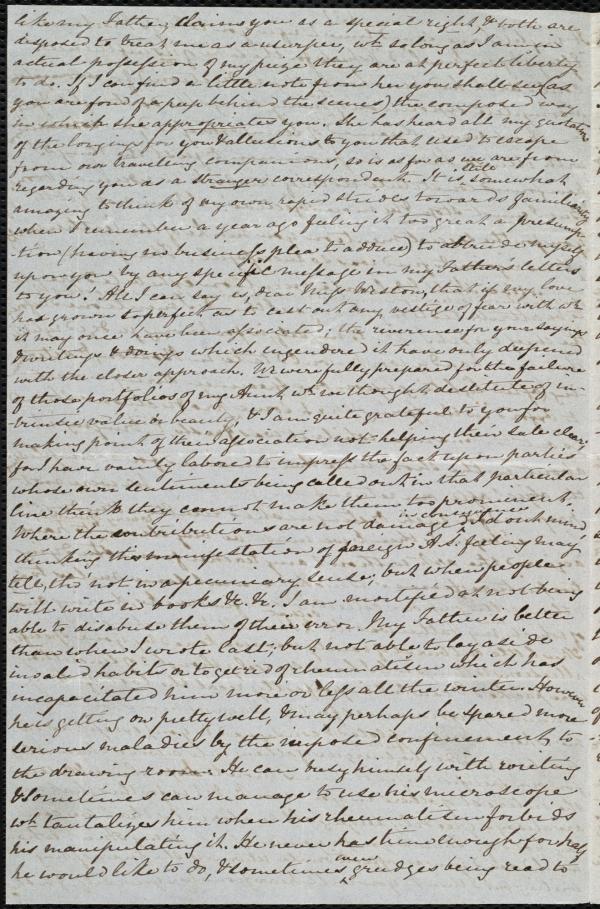 like my Father, claims you as a special right, & both are
disposed to treat me as a usurper, wh: so long as I am in
actual possession of my prize they are at perfect liberty
to do. If I can find a little note from her you shall see (as
you are fond of a peep behind the scenes) the composed way
in which she appropriates you. She has heard all my quotations
of the longings for you & allusions to you that used to escape
from our traveling companions, so is as far as we are from
regarding you as a stranger correspondent. It is still somewhat
amazing to think of my own rapid strides towards familiarity
when I remember a year ago feeling it too great a presump-
-tion (having no business plea to adduce) to obtrude myself
upon you by any specific message in my Father's letters
to you! All I can say is, dear Miss Weston, that if my love
has grown so perfect as to cast out any vestige of fear with wh:
it may once have been associated; the reverence for your sayings
& writings & doings which engendered it have only deepened
with the closer approach. We were fully prepared for the failure
of those portfolios of my Aunt wh: we thought destitute of in-
-trinsic value or beauty, & I am quite grateful to you for
making point of their association not helping their sale clear,
for I have vainly labored to impress the fact upon parties
whose own sentiments being called out in that particular
line think they cannot make them too prominent.
Where the contributions are not damaged in consequence I dont mind
thinking this manifestation of foreign A.S. feeling may
tell, tho' not in a pecuniary sense; but when people
will write in books &c. &c. I am mortified at not being
able to disabuse them of their error. My Father is better
than when I wrote last; but not able to lay aside
invalid habits or to get rid of rheumatism which has
incapacitated him more or less all the winter. However
he is getting on pretty well, & may perhaps be spared more
serious maladies by the imposed confinement to
the drawing room. He can busy himself with writing
& sometimes can manage to use his microscope
wh: tantalizes him when his rheumatism forbids
his manipulating it. He never has time enough for half
he would like to do, & sometimes even grudges being read to